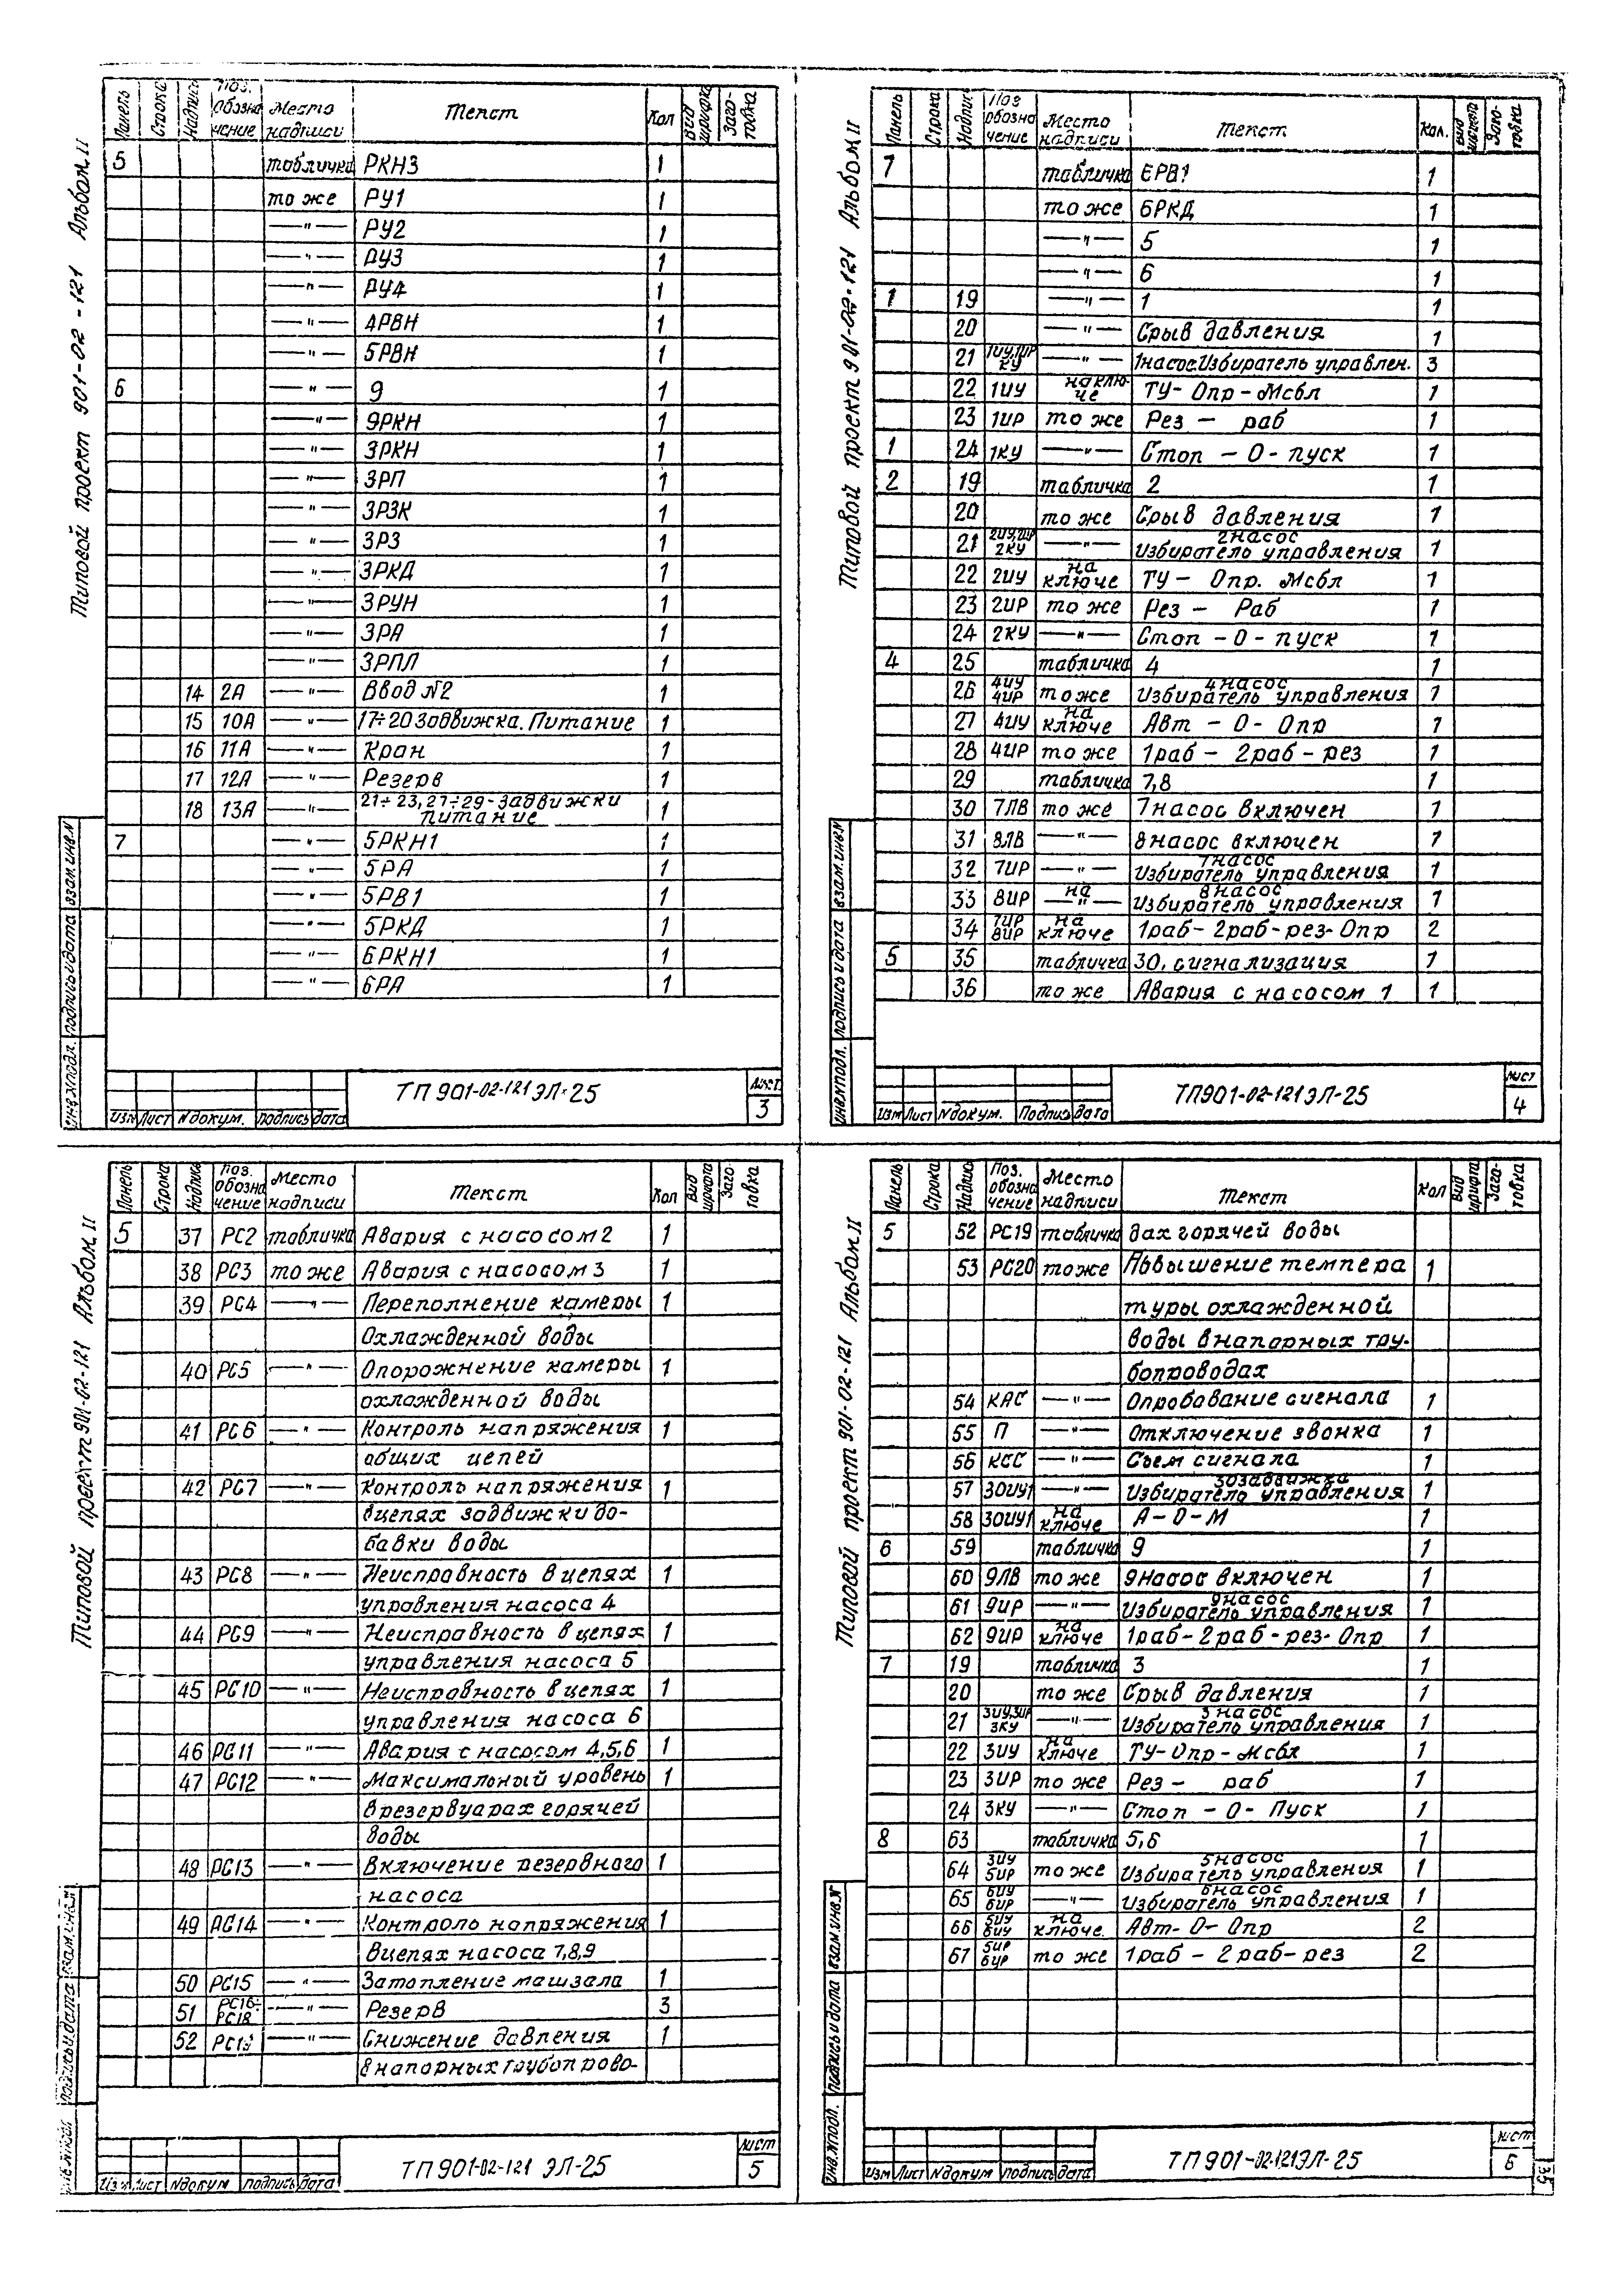 Типовой проект 901-02-121 Альбом II
Панель Строка Надпись Поз. обозначение Место надписи Текст Кол Вид шрифта Заготовка
5 табличка РКН3 1
то же РУ1 1
—"— РУ2 1
—"— РУ3 1
—"— РУ4 1
—"— 4РВН 1
—"— 5РВН 1
6 " 9 1
—"— 9РКН 1
—"— 3РКН 1
—"— 3РП 1
—"— 3РЗК 1
—"— 3РЗ 1
—"— 3РКД 1
—"— 3РУН 1
—"— 3РА 1
—"— 3РПЛ 1
14 2А —"— Ввод N2 1
15 10А —"— 17÷20 задвижка. Питание 1
16 11А —"— Кран 1
17 12А —"— Резерв 1
18 13А —"— 21÷23, 27÷29-задвижки
питание 1
7 —"— 5РКН1 1
—"— 5РА 1
—"— 5РВ1 1
—"— 5РКД 1
—"— 6РКН1 1
—"— 6РА 1
Инв.Nподл. Подпись и дата Взам.инв.N
Изм Лист Nдокум. Подпись дата
ТП 901-02-121 ЭЛ-25
Лист
3
Типовой проект 901-02-121 Альбом II
Панель Строка Надпис Поз обозначение Место надписи Текст Кол. Вид шрифта Заготовка
7 табличка 6РВ1 1
то же 6РКД 1
—"— 5 1
—"— 6 1
1 19 —"— 1 1
20 —"— Срыв давления 1
21 1ИУ,1ИР
КУ —"— 1насос.Избиратель управлен. 3
22 1ИУ на ключе ТУ-Опр-Мсбл 1
23 1ИР то же Рез - раб 1
1 24 1КУ —"— Стоп - О - пуск 1
2 19 табличка 2 1
20 то же Срыв давления 1
21 2ИУ,2ИР
2КУ —"— 2насос
Избиратель управления 1
22 2ИУ на ключе ТУ - Опр. Мсбл 1
23 2ИР то же Рез - Раб 1
24 2КУ —"— Стоп - О - пуск 1
4 25 табличка 4 1
26 4ИУ
4ИР то же 4насос
Избиратель управления 1
27 4ИУ на ключе Авт - О - Опр 1
28 4ИР то же 1раб - 2раб - рез 1
29 табличка 7,8 1
30 7ЛВ то же 7насос включен 1
31 8ЛВ —"— 8насос включен 1
32 7ИР —"— 7насос
Избиратель управления 1
33 8ИР на —"— 8насос
Избиратель управления 1
34 7ИР
8ИР на ключе 1раб-2раб-рез-Опр 2
5 35 табличка 30, сигнализация 1
36 то же Авария с насосом 1 1
Инв.Nподл. Подпись и дата Взам.инв.N
Изм Лист Nдокум. Подпись дата
ТП901-02-121 ЭЛ-25
Лист
4
Типовой проект 901-02-121 Альбом II
Панель Строка Надпись Поз. обозначение Место надписи Текст Кол Вид шрифта Заготовка
5 37 РС2 табличка Авария с насосом 2 1
38 РС3 то же Авария с насосом 3 1
39 РС4 —"— Переполнение камеры 1
Охлажденной воды
40 РС5 —"— Опорожнение камеры 1
охлажденной воды
41 РС6 —"— Контроль напряжения 1
общих цепей
42 РС7 —"— Контроль напряжения 1
вцепях задвижки до-
бавки воды
43 РС8 —"— Неисправность в цепях 1
управления насоса 4
44 РС9 —"— Неисправность в цепях 1
управления насоса 5
45 РС10 —"— Неисправность в цепях 1
управления насоса 6
46 РС11 —"— Авария с насосом 4,5,6 1
47 РС12 —"— Максимальный уровень 1
в резервуарах горячей
воды
48 РС13 —"— Включение резервного 1
насоса
49 РС14 —"— Контроль напряжения 1
Вцепях насоса 7,8,9
50 РС15 —"— Затопление машзала 1
51 РС16÷
РС18 —"— Резерв 3
52 РС19 —"— Снижение давления 1
в напорных трубопрово-
Подпись и дата Взам.инв.N
Изм Лист Nдокум Подпись дата
ТП 901-02-121 ЭЛ-25
Лист
5
Типовой проект 901-02-121 Альбом II
Панель Строка Надпис Поз. обозначение Место надписи Текст Кол Вид шрифта Заготовка
5 52 РС19 табличка дах горячей воды
53 РС20 то же Повышение темпера 1
туры охлажденной
воды в напорных тру-
бопроводах
54 КАС —"— Опробование сигнала 1
55 П —"— Отключение звонка 1
56 КСС —"— Съем сигнала 1
57 30ИУ1 —"— 30задвижка
Избиратель управления 1
58 30ИУ1 на ключе А-О-М 1
6 59 табличка 9 1
60 9ЛВ то же 9насос включен 1
61 9ИР —"— 9насос
Избиратель управления 1
62 9ИР на ключе 1раб-2раб-рез-Опр 1
7 19 табличка 3 1
20 то же Срыв давления 1
21 3ИУ,3ИР
3КУ —"— 3насос
Избиратель управления 1
22 3ИУ на ключе ТУ-Опр-Мсбл 1
23 3ИР то же Рез - раб 1
24 3КУ —"— Стоп - О - Пуск 1
8 63 табличка 5,6 1
64 3ИУ
5ИР то же 5насос
Избиратель управления 1
65 6ИУ
6ИР —"— 6насос
Избиратель управления 1
66 5ИУ
6ИУ на ключе. Авт-О-Опр 2
67 5ИР
6ИР то же 1раб - 2раб-рез 2
Инв.Nподл. Подпись и дата Взам.инв.N
Изм Лист Nдокум Подпись дата
ТП 901-02-121ЭЛ-25
Лист
6
35